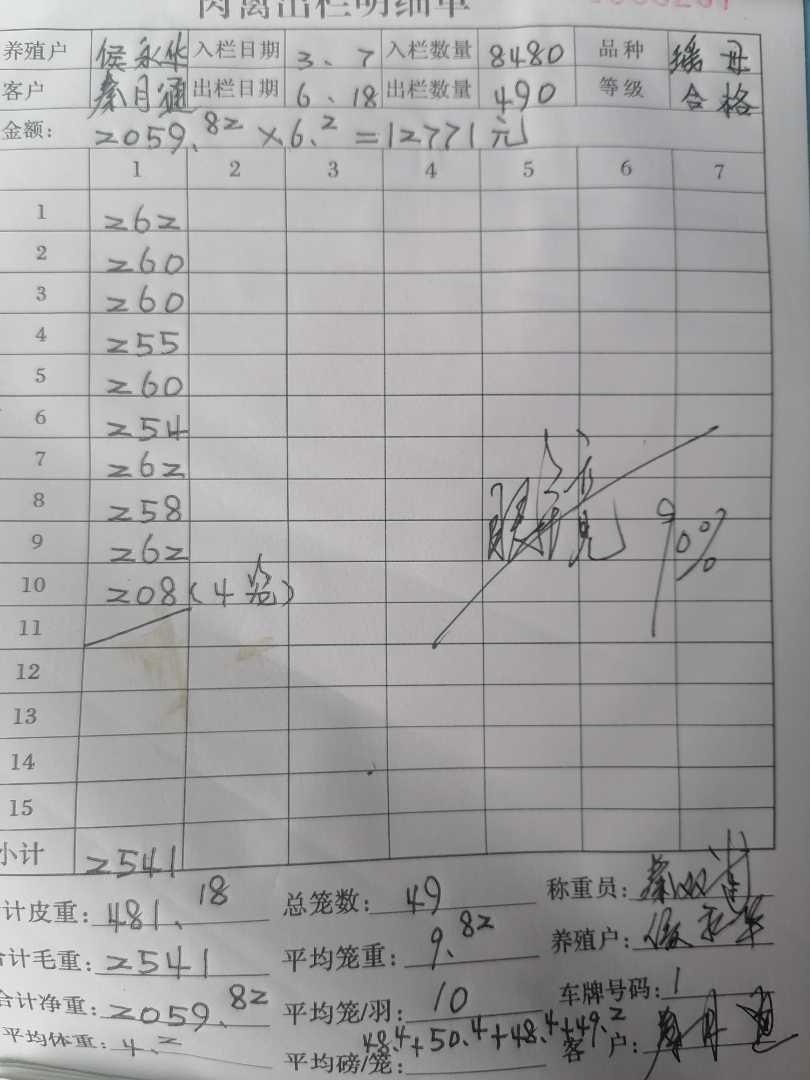 肉禽出栏明细单
养殖户 侯永华 入栏日期 3、7 入栏数量 8480 品种 瑶母
客户 秦月通 出栏日期 6、18 出栏数量 490 等级 合格
金额: 2059.82×6.2=12771元
1 2 3 4 5 6 7
1 262
2 260
3 260
4 255
5 260
6 254
7 262
8 258
9 262
10 208(4笼)
11
12
13
14
15
小计 2541
计皮重: 481.18 总笼数: 49 称重员: 秦双
合计毛重: 2541 平均笼重: 9.82 养殖户: 侯永华
合计净重: 2059.82 平均笼/羽: 10 车牌号码: 1
平均体重: 4.2 平均磅/笼: 48.4+50.4+48.4+49.2 客户: 秦月通
90%